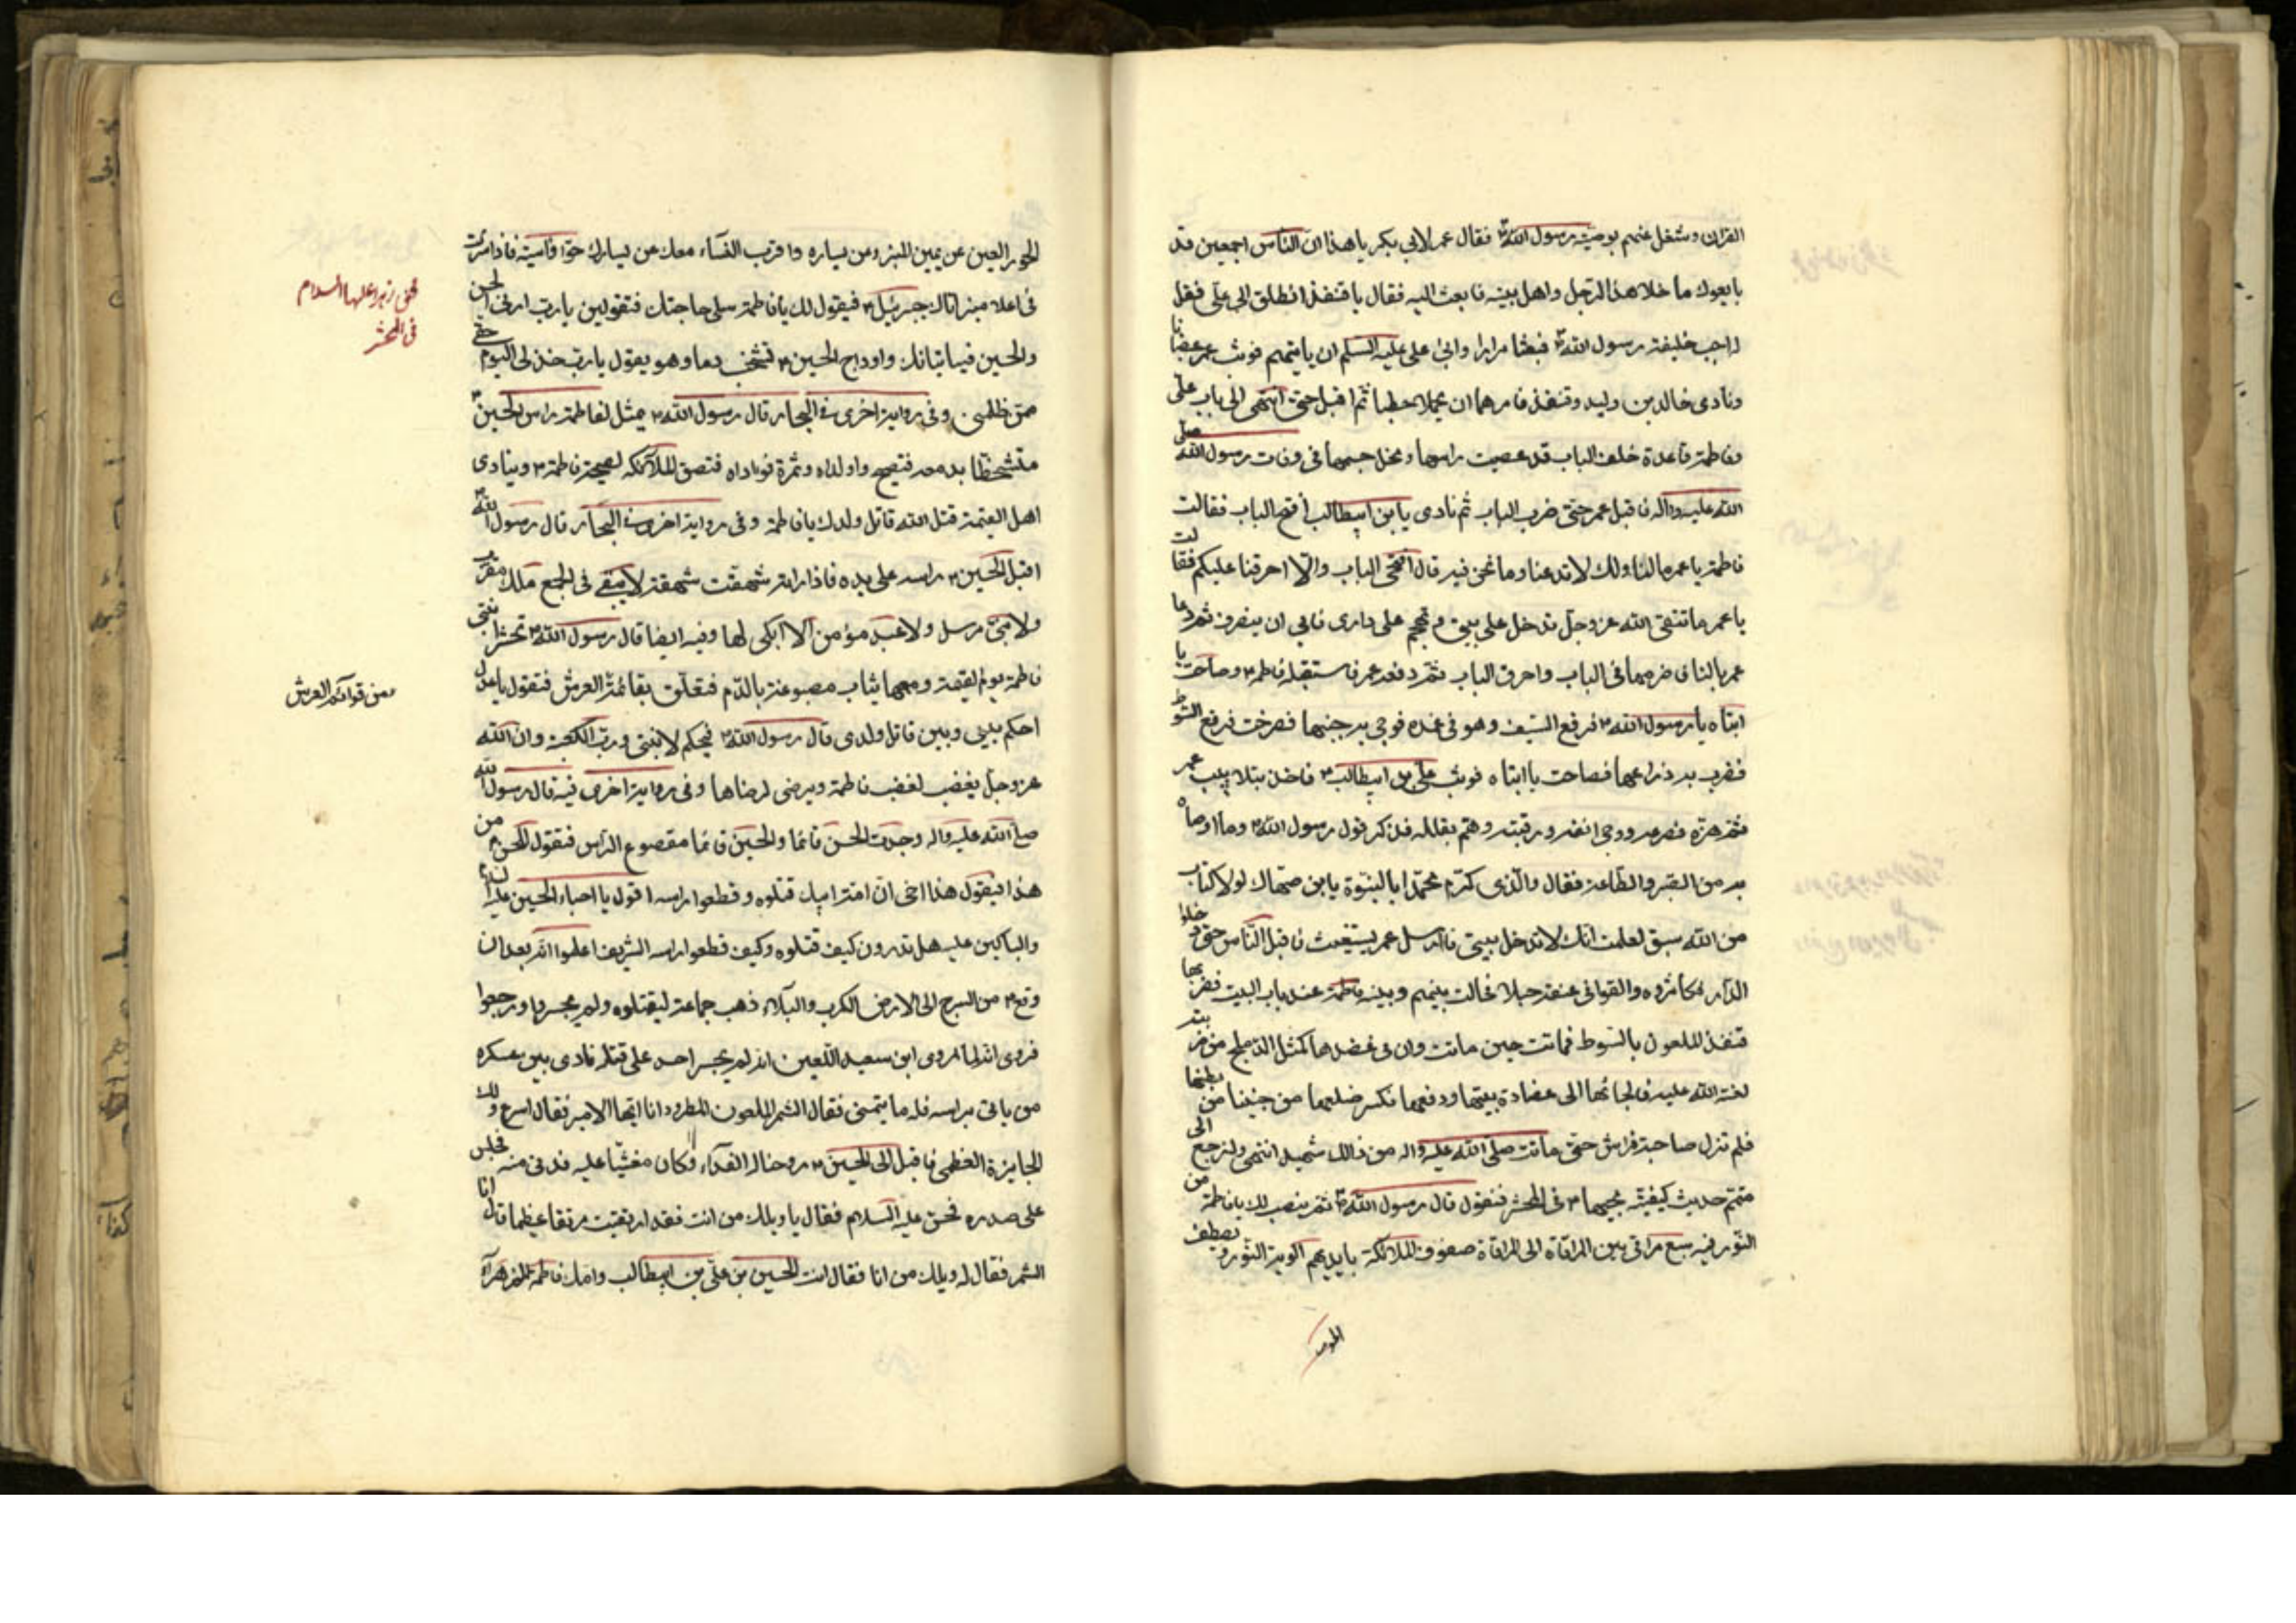 القران وشغل عنهم بوصيته رسول الله ص فقال عمر لابي بكر يا هذا ان الناس اجمعين قد
بايعوك ما خلا هذا الرجل واهل بيته فابعث اليه فقال يا قنفذ انطلق الى علي فقل
اجب خليفة رسول الله ص فبعثا مرارا وابى علي عليه السلم ان ياتيهم فوثب عمر غضبانا
ونادى خالد بن وليد وقنفذ فامرهما ان يحملا حطبا ثم اقبل حتى انتهى الى باب علي
وفاطمة قاعدة خلف الباب قد عصبت راسها ونحل جسمها في وفات رسول الله صلى
الله عليه واله فاقبل عمر حتى ضرب الباب ثم نادى يابن ابيطالب افتح الباب فقالت
فاطمة يا عمر ما لنا ولك لا تدعنا وما نحن فيه قال افتحى الباب والا احرقنا عليكم فقالت
يا عمر ما تتقى الله عز وجل تدخل على بيتي وتهجم على دارى فابى ان ينصرف ثم دعا
عمر بالنار فاضرمها في الباب واحرق الباب ثم دفعه عمر فاستقبله فاطمه ع وصاحت يا
ابتاه يا رسول الله ص فرفع السيف وهو في غمده فوجى به جنبها فصرخت فرفع السوط
فضرب به ذراعها فصاحت يا ابتاه فوثب علي بن ابيطالب ع فاخذ بتلابيب عمر
ثم هزه فصرعه ووجى انفه ورقبته وهم بقتله فذكر قول رسول الله ص وما اوصاه
به من الصبر والطاعة فقال والذى كرم محمدا بالنبوة يابن صهاك لولا كتاب
من الله سبق لعلمت انك لا تدخل بيتى فارسل عمر يستغيث فاقبل الناس حتى دخلوا
الدار فكاثروه والقوا في عنقه حبلا فحالت بينهم وبينه فاطمة عند باب البيت فضربها
قنفذ الملعون بالسوط فماتت حين ماتت وان في عضدها كمثل الدملج من ضربته
لعنة الله عليه فالجاها الى عضادة بيتها ودفعها فكسر ضلعها من جنبها من بطنها
فلم تزل صاحبة فراش حتى ماتت صلى الله عليه واله من ذالك شهيدة انتهى ولنرجع الى
متمم حديث كيفية مجيئها ع في المحشر فنقول قال رسول الله ص ثم ينصب لك يا فاطمة من
النور فيه سبع مراقي بين المرقاة الى المرقاة صفوف الملائكة بايديهم الوية النور وتصطف
الحور
الحور العين عن يمين المنبر وعن يساره واقرب النساء معك عن يسارك حوا واسيه فاذا صرت
في اعلا منبر اتاك جبرئيل ع فيقول لك يا فاطمة سلى حاجتك فتقولين يا رب ارنى الحسن
والحسين فياتيانك واوداج الحسين ع تشخب دما وهو يقول يا رب خذ لى اليوم حقى
ممن ظلمنى وفي رواية اخرى في البحار قال رسول الله ص يمثل لفاطمة راس الحسين ع
متشحطا بدمه فتصيح واولداه وثمرة فواداه فتصعق الملائكه لصيحة فاطمة ع وينادى
اهل القيمة قتل الله قاتل ولدك يا فاطمة وفي رواية اخرى في البحار قال رسول الله ص
اقبل الحسين ع راسه على يده فاذا راته شهقت شهقة لا يبقى في الجمع ملك مقرب
ولا نبى مرسل ولا عبد مؤمن الا ابكى لها وفيه ايضا قال رسول الله ص تحشر ابنتى
فاطمة يوم القيمة ومعها ثياب مصبوغة بالدم فتعلق بقائمة العرش فتقول يا عدل
احكم بينى وبين قاتل ولدى قال رسول الله ص فيحكم لابنتى ورب الكعبة وان الله
عز وجل يغضب لغضب فاطمة ويرضى لرضاها وفي رواية اخرى فيه قال رسول الله
صلى الله عليه واله وجدت الحسن قائما والحسين قائما مقصوع الراس فتقول للحسن ع من
هذا فيقول هذا اخى ان امة ابيك قتلوه وقطعوا راسه اقول يا احباء الحسين عليه السلام
والباكين عليه هل تدرون كيف قتلوه وكيف قطعوا راسه الشريف اعلموا انه بعد ان
وقع ع من السرج الى الارض الكرب والبلاء ذهب جماعة ليقتلوه ولم يجسروا ورجعوا
فروى انه لما روى ابن سعيد اللعين انه لم يجسر احد على قتله نادى بين عسكره
من ياتى براسه فله ما يتمنى فقال الشمر الملعون المطرود انا ايها الامير فقال اسرع ولك
الجايزة العظمى فاقبل الى الحسين ع روحنا له الفداء وكان مغشيا عليه فدنى منه فجلس
على صدره فحس عليه السلام فقال يا ويلك من انت فقد ارتقيت مرتقا عظيما قال انا
الشمر فقال له ويلك من انا فقال انت الحسين بن علي بن ابيطالب وامك فاطمة الزهرآء
زهرا عليها السلام
في المحشر
من قوائم العرش